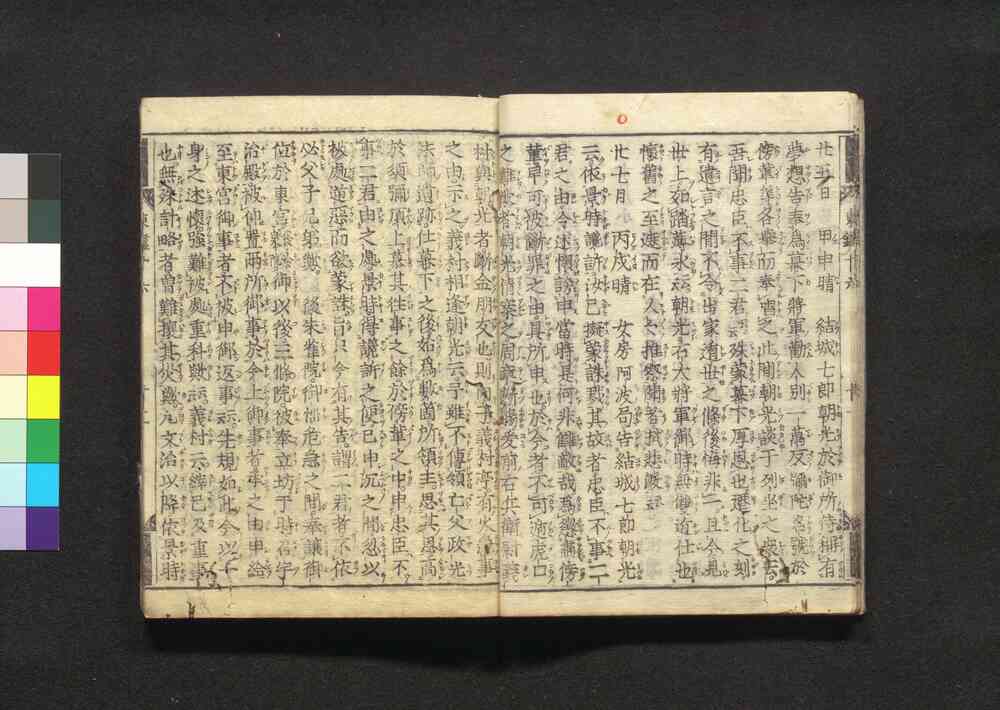 廿五日　甲申晴　結城七郎朝光於御所侍稱有
夢想告奉爲幕下將軍勸人別一萬反彌陀名號於
傍輩等各擧而奉唱之此間朝光談于列坐之衆云
吾聞忠臣不事二君云殊蒙幕下厚恩也遷化之刻
有遺言之間不令出家遁世之條後悔非一且今見
世上如踏薄氷云朝光右大將軍御時無雙近仕也
懷舊之至遮而在人々推察聞者拭悲淚云
廿七日　丙戌晴　女房阿波局告結城七郎朝光
云依景特讒訴汝已擬蒙誅戮其故者忠臣不事二
君之由令述懷謗申當時是何非讎敵哉爲懲肅傍
輩早可被斷罪之由具所申也於今者不可遁虎口
之難
村與朝光者斷金朋友也則向于義村宅有火急事
之由示之義村相逢朝光云予雖不傳領亡父政光
法師遺跡仕幕下之後始爲數箇所領主思其恩高
於須彌頂上慕其往事之餘於傍輩之中申忠臣不
事二君由之處景時得讒訴之便已申沉之間忽以
被處逆惡而欲蒙誅旨只今有其告謂二君者不依
必父子兄弟歟　後朱雀院御惱危急之間奉讓御
位於東宮
洽殿被仰置兩所御事於今上御事者承之由申給
至東宮御事者不被申御返事云先規如此今以一
身之述懷強難被處重科歟云義村云縡已及重事
也無殊計略者曾難攘其災歟凡文治以降依景時
東鑑十六